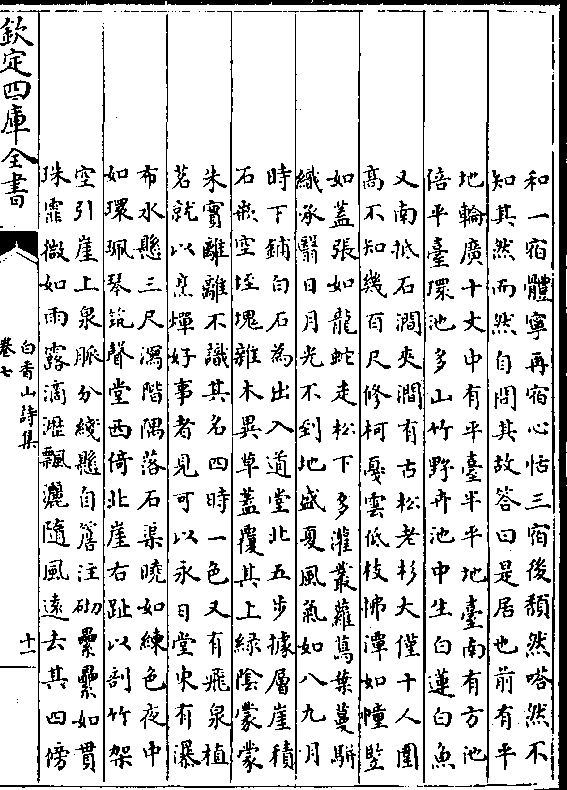 和一宿體寧再宿心恬三宿後頹然嗒然不
知其然而然自問其故答曰是居也前有平
地輪廣十丈中有平臺半平地臺南有方池
倍平臺環池多山竹野卉池中生白蓮白魚
又南抵石澗夾澗有古松老杉大僅十人圍
高不知幾百尺修柯戛雲低枝怫潭如幢竪
如蓋張如龍蛇走松下多灌叢蘿蔦葉蔓駢
織承翳日月光不到地盛夏風氣如八九月
時下鋪白石為出入道堂北五步據層崖積
石嵌空垤塊雜木異草蓋覆其上綠陰蒙蒙
朱實離離不識其名四時一色又有飛泉植
茗就以烹燀好事者見可以永日堂東有瀑
布水懸三尺瀉階隅落石渠曉如練色夜中
如環珮琴筑聲堂西倚北崖右趾以剖竹架
空引崖上泉脈分綫懸自簷注砌纍纍如貫
珠霏微如雨露滴瀝飄灑隨風遠去其四傍
欽定四庫全書
白香山詩集
卷七
十一